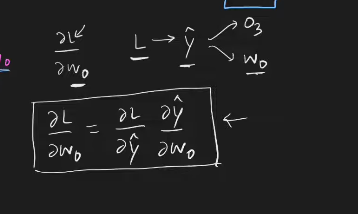 ∂L/∂w₀ L → Ŷ → O₃
→ w₀
∂L/∂w₀ = ∂L/∂Ŷ ∂Ŷ/∂w₀ ←